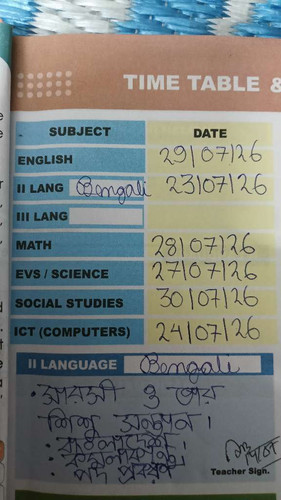 TIME TABLE &
SUBJECT DATE
ENGLISH 29/07/26
II LANG Bengali 23/07/26
III LANG
MATH 28/07/26
EVS / SCIENCE 27/07/26
SOCIAL STUDIES 30/07/26
ICT (COMPUTERS) 24/07/26
II LANGUAGE Bengali
• আরসী ও তার
শিশু সন্তান।
• বাংলাদেশে।
• পদ প্রকরণ
Teacher Sign.